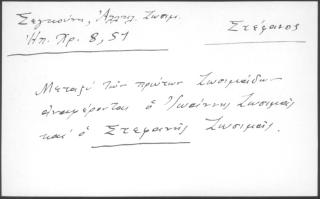 Σεγκούνη, Αλληλ. Ζωσιμ.
Ἠπ. Χρ. 8, 51
Στέφανος
Μεταξὺ τῶν πρώτων Ζωσιμάδων
ἀναφέρονται ὁ Ἰωάννης Ζωσιμᾶς
καὶ ὁ Στεφανῆς Ζωσιμᾶς.